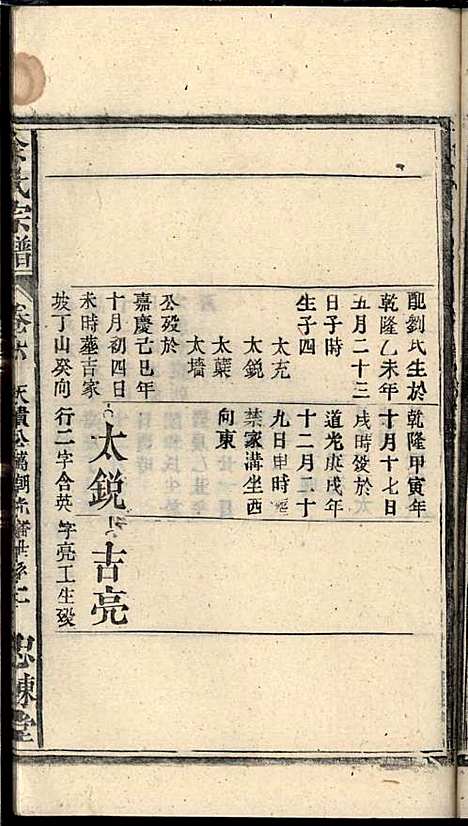 配劉氏生於
乾隆乙未年
五月二十三
日子時
生子四
太充
太鋭
太蘂
太墻
公殁於
嘉慶己巳年
十月初四日
未時塟吉家
坡丁山癸向
乾隆甲寅年
十月十七日
戌時殁於
道光庚戌年
十二月二十
九日申時塟
禁家溝坐西
向東
太鋭 吉亮
行二字含英 字亮工生殁
氏宗譜
卷六
忠諫堂